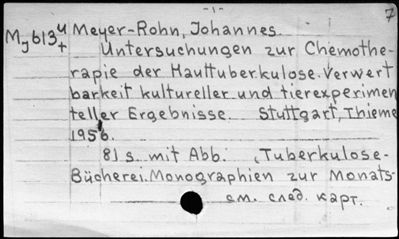 -1- 7
Mj613 4/+ Meyer-Rohn, Johannes.
Untersuchungen zur Chemothe-
rapie der Hauttuberkulose. Verwert
barkeit kultureller und tierexperimen
teller Ergebnisse. Stuttgart, Thieme
1956.
81 s. mit Abb. (Tuberkulose-
Bücherei. Monographien zur Monats-
см. след. карт.